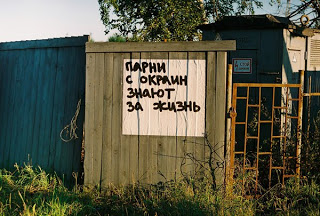 ПАРНИ
С ОКРАИН
ЗНАЮТ
ЗА ЖИЗНЬ